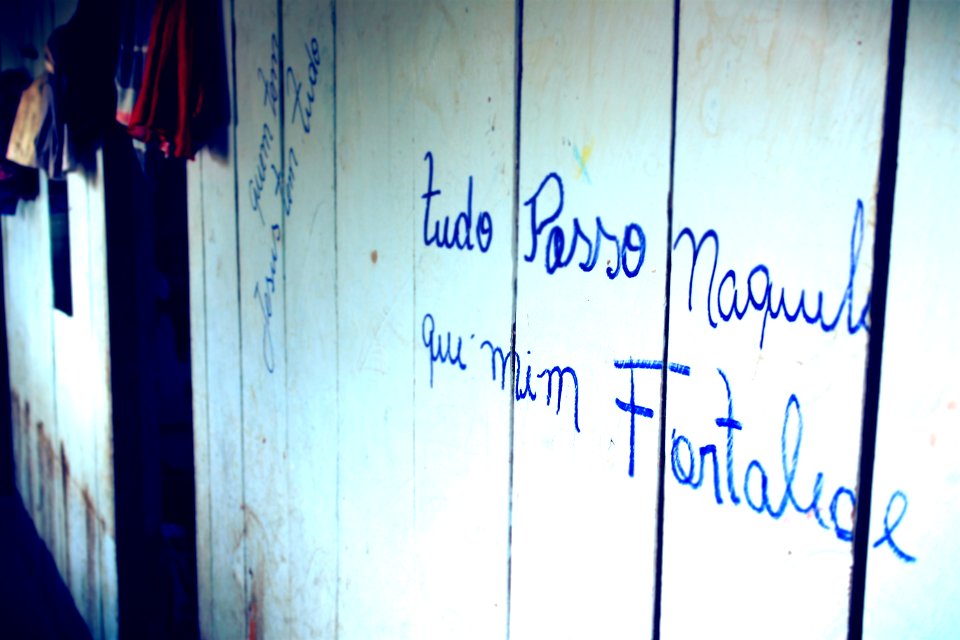 quem tem
Jesus tem tudo
tudo Posso Naquele
que mim Fortalece